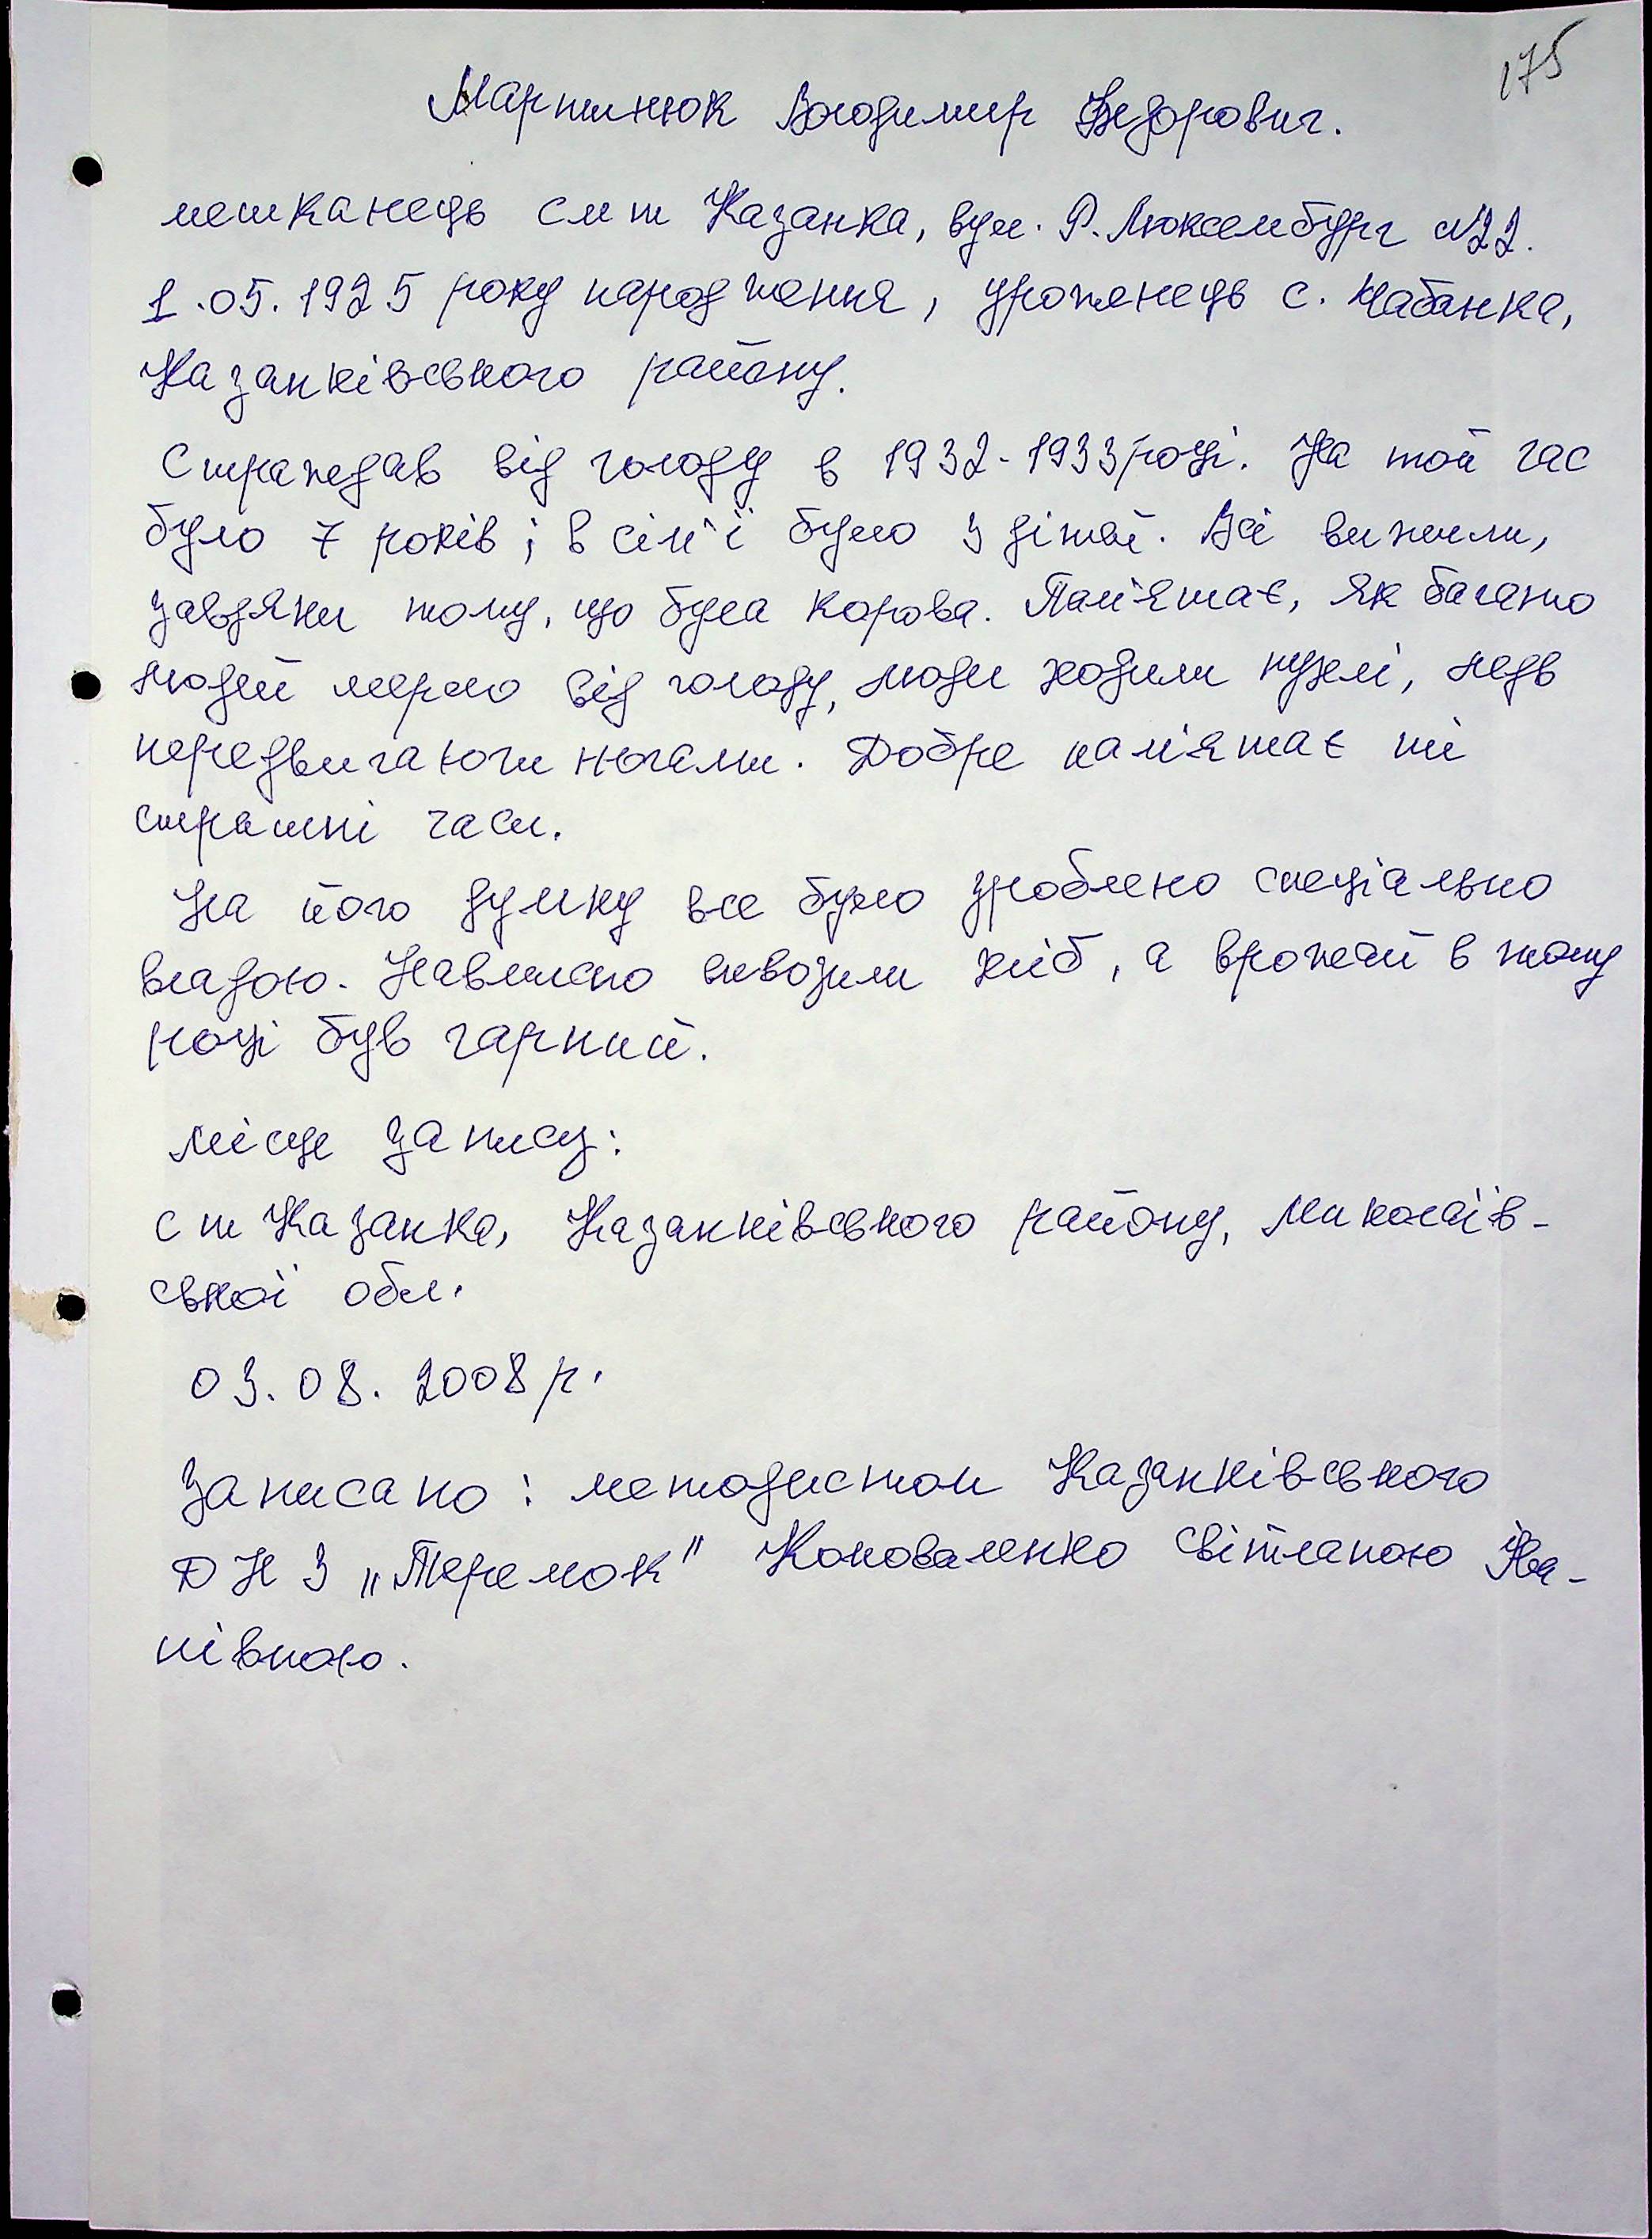 175
Мартинюк Володимир Федорович.
мешканець смт Казанка, вул. Р. Люксембург №22.
1.05.1925 року народження, уроженець с. Чабанка,
Казанківського району.
Страждав від голоду в 1932-1933 році. На той час
було 7 років; в сім'ї було 3 дітей. Всі вижили,
завдяки тому, що була корова. Пам'ятає, як багато
людей мерло від голоду, люди ходили пухлі, ледь
передвигаючи ногами. Добре пам'ятає ті
страшні часи.
На його думку все було зроблено спеціально
владою. Навмисно вивозили хліб, а врожай в тому
році був гарний.
Місце запису:
с т Казанка, Казанківського району, Миколаїв-
ської обл.
03.08.2008 р.
Записано: методистом Казанківського
ДНЗ „Теремок" Коноваленко Світланою Іва-
нівною.